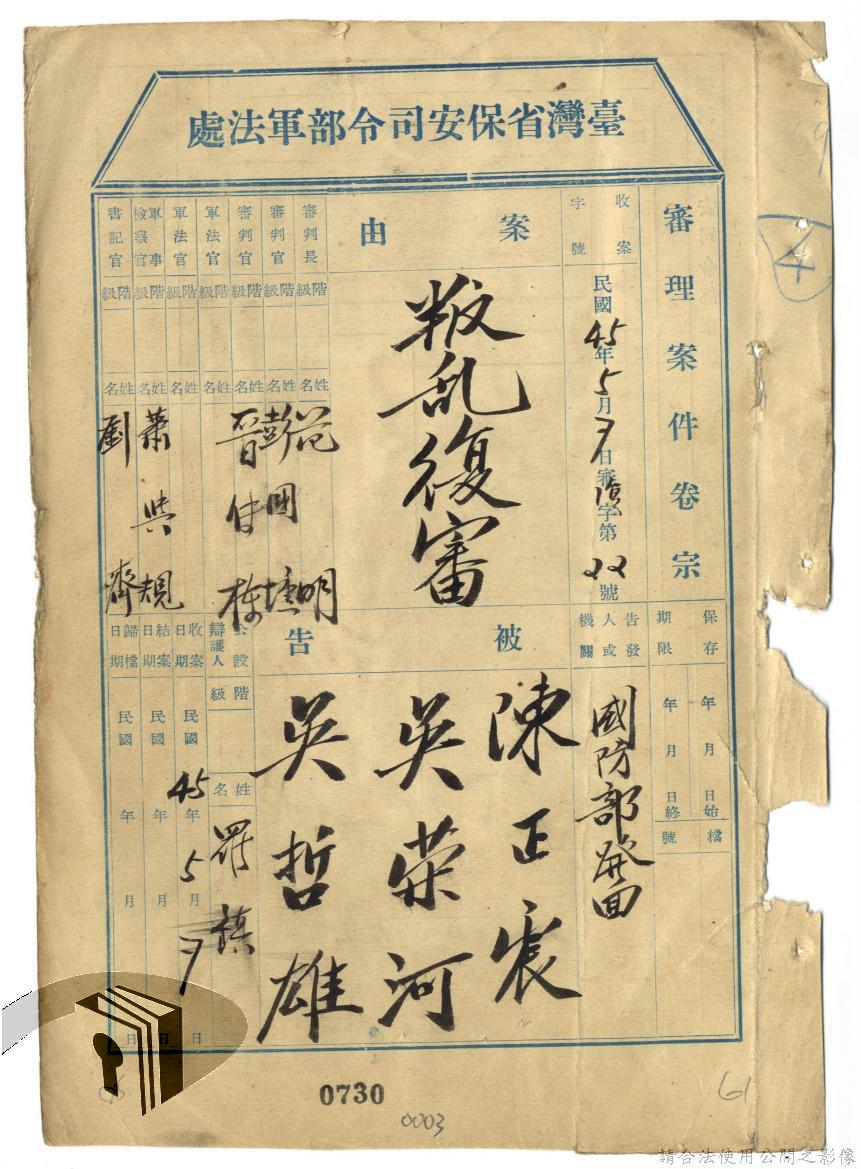 臺灣省保安司令部軍法處
審理案件卷宗
保存期限
年 月 日始
年 月 日終
檔號
收案字號
民國45年5月7日審復字第22號
告發人或機關
國防部發回
案由
叛乱復審
被告
陳正宸
吳荣河
吳哲雄
審判長
階級
姓名
范明
審判官
階級
姓名
彭國壎
審判官
階級
姓名
晉仕棟
軍法官
階級
姓名
軍法官
階級
姓名
軍事檢察官
階級
姓名
蕭與規
書記官
階級
姓名
劉齊
公設辯護人
階級
姓名
羅鎮
收案日期
民國45年5月7日
結案日期
民國 年 月 日
歸檔日期
民國 年 月 日
4
69
0730
0003
61
請合法使用公開之影像